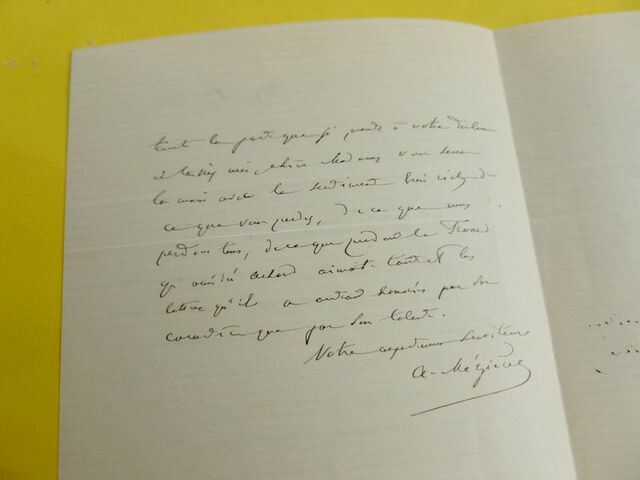 toute la part que je prends à votre douleur
et laissez moi, chère Madame, vous serrer
la main avec le sentiment bien
ce que vous perdez, de ce que nous
perdons tous, de ce que perdent la France
qu' aimait tant et les
lettres qu'il a autant honorées par son
caractère que par son talent.
Votre respectueux serviteur
A. Mézières